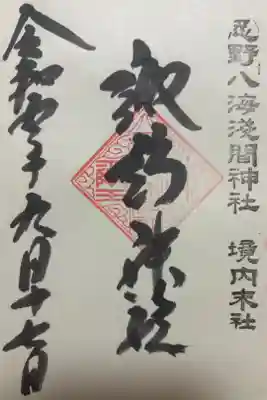 忍野八海浅間神社 境内末社
諏訪神社
令和四年九月十七日